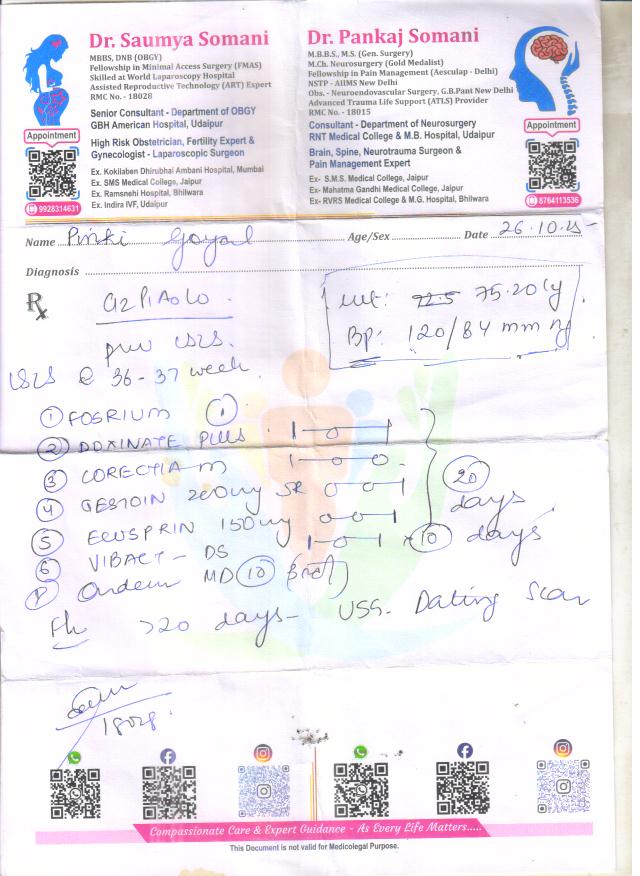 Dr. Saumya Somani
MBBS, DNB (OBGY)
Fellowship in Minimal Access Surgery (FMAS)
Skilled at World Laparoscopy Hospital
Assisted Reproductive Technology (ART) Expert
RMC No. - 18028
Senior Consultant - Department of OBGY
GBH American Hospital, Udaipur
High Risk Obstetrician, Fertility Expert &
Gynecologist - Laparoscopic Surgeon
Ex. Kokilaben Dhirubhai Ambani Hospital, Mumbai
Ex. SMS Medical College, Jaipur
Ex. Ramsnehi Hospital, Bhilwara
Ex. Indira IVF, Udaipur
Appointment
9928314631
Dr. Pankaj Somani
M.B.B.S., M.S. (Gen. Surgery)
M.Ch. Neurosurgery (Gold Medalist)
Fellowship in Pain Management (Aesculap - Delhi)
NSTP - AIIMS New Delhi
Obs. - Neuroendovascular Surgery, G.B.Pant New Delhi
Advanced Trauma Life Support (ATLS) Provider
RMC No. - 18015
Consultant - Department of Neurosurgery
RNT Medical College & M.B. Hospital, Udaipur
Brain, Spine, Neurotrauma Surgeon &
Pain Management Expert
Ex- S.M.S. Medical College, Jaipur
Ex- Mahatma Gandhi Medical College, Jaipur
Ex- RVRS Medical College & M.G. Hospital, Bhilwara
Appointment
8764113536
Name Pinki Goyal Age/Sex Date 26.10.25
Diagnosis
Rx G2P1A0L0
wt: 72.5 75.20
BP: 120/84 mm Hg
prev LSCS
LSCS @ 36-37 week
① FOSRIUM ①
② DOXINATE PLUS
③ CORECTIA M
④ GESTOIN 200mg SR
⑤ ECOSPRIN 150mg
⑥ VIBACT - DS
Ondem MD ⑩
20 days
x 10 days
>20 days - USG. Dating Scan
18028
Compassionate Care & Expert Guidance - As Every Life Matters.....
This Document is not valid for Medicolegal Purpose.